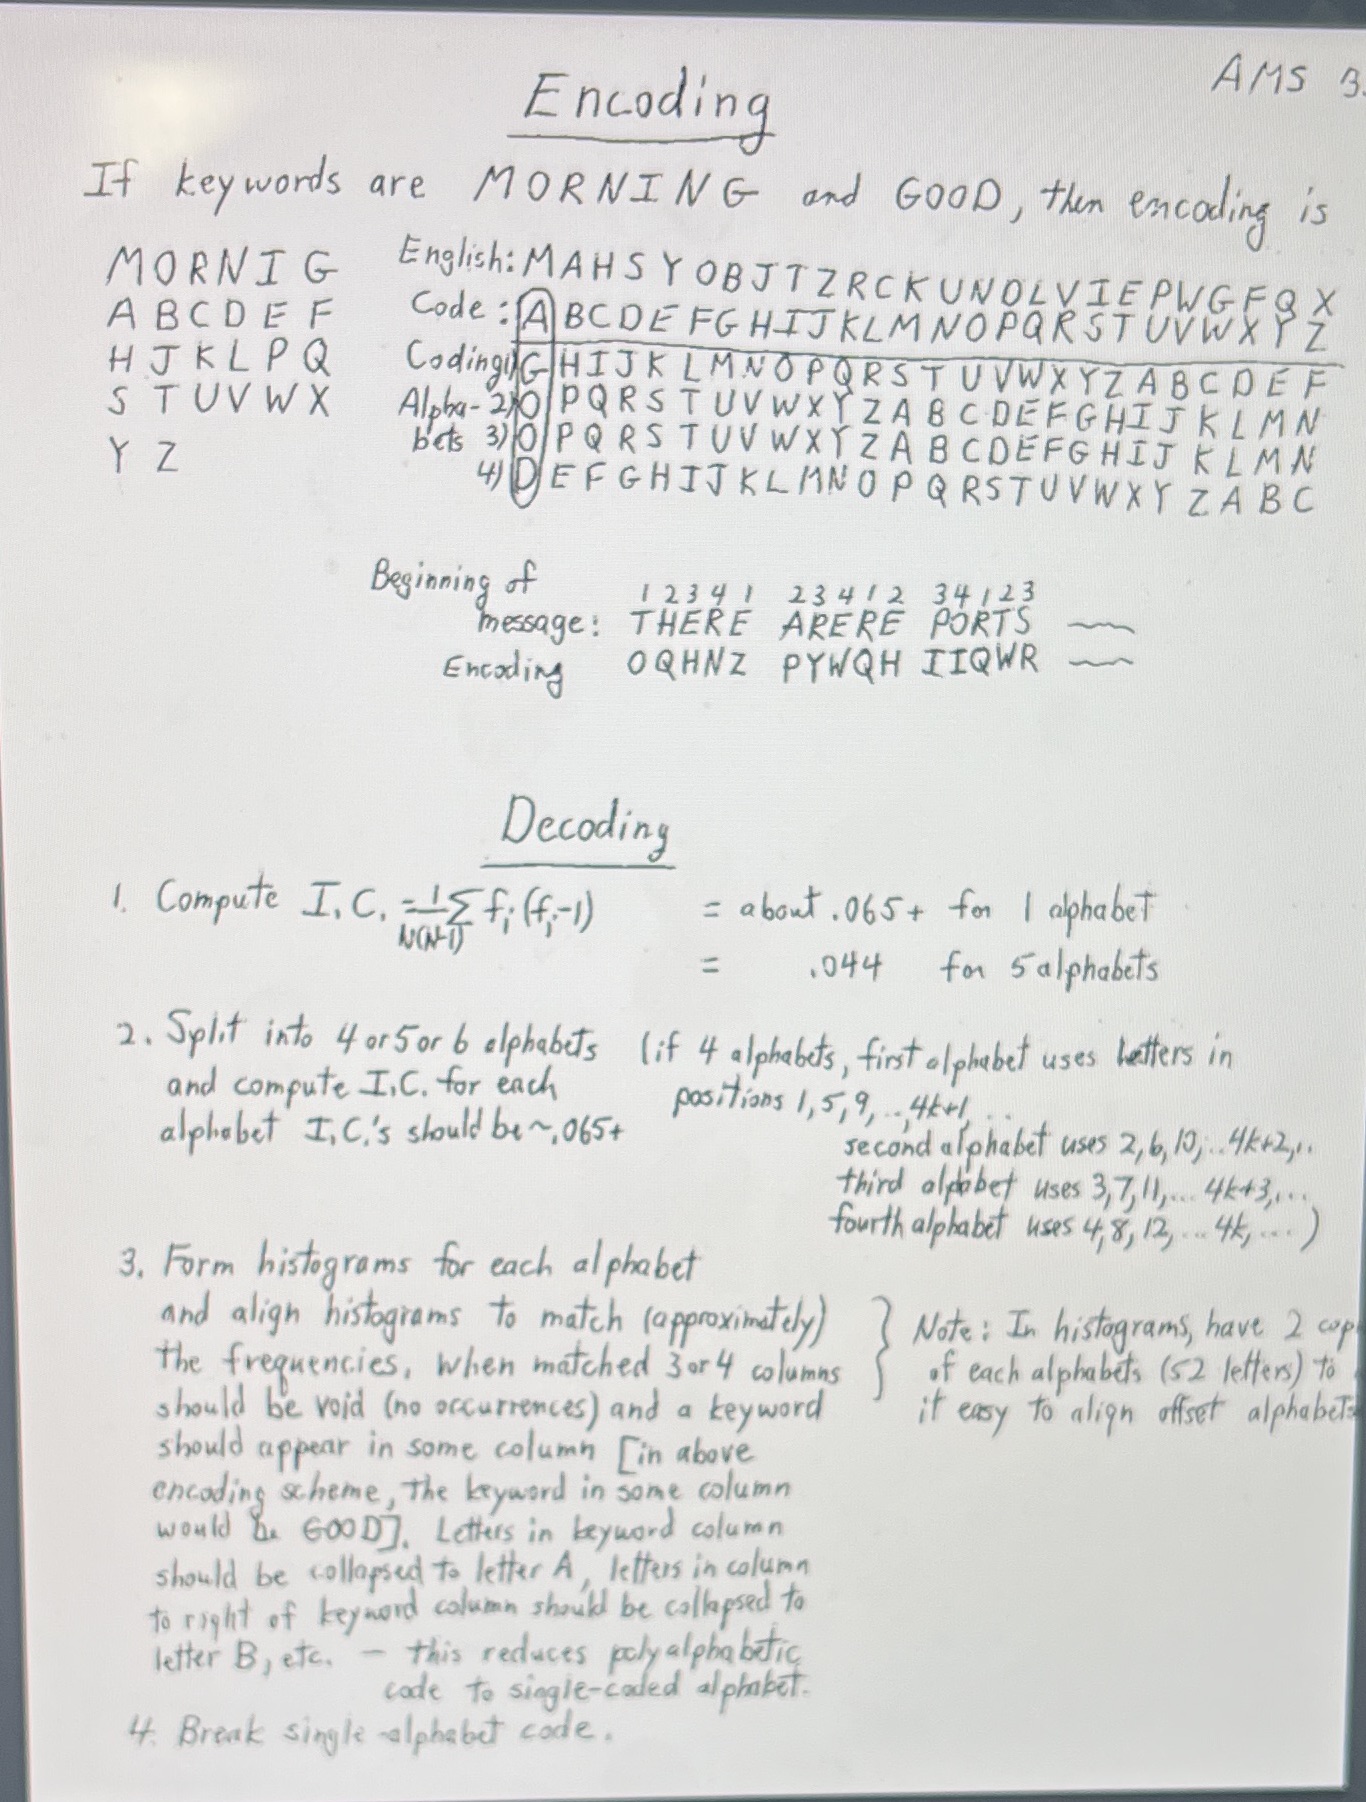 AMS 3
Encoding
If keywords are MORNING and GOOD, then encoding is
MORNIG
ABCDEF
HJKLPQ
STUVWX
YZ
English: MAHSYOBJTZRCKUNDLVIEPWGFQX
Code: ABCDEFGHIJKLMNOPQRSTUVWXYZ
Coding 1) GHIJKLMNOPQRSTUVWXYZABCDEF
Alpha- 2) OPQRSTUVWXYZABCDEFGHIJKLMN
bets 3) OPQRSTUVWXYZABCDEFGHIJKLMN
4) DEFGHIJKLMNOPQRSTUVWXYZABC
Beginning of 1 2 3 4 1 2 3 4 1 2 3 4 1 2 3
message: THERE ARERE PORTS
Encoding OQHNZ PYWQH IIQWR
Decoding
1. Compute I.C. = 1/N(N-1) Σ fi(fi-1) = about .065+ for 1 alphabet
= .044 for 5 alphabets
2. Split into 4 or 5 or 6 alphabets (if 4 alphabets, first alphabet uses letters in
and compute I.C. for each positions 1,5,9,..,4k+1,..
alphabet I.C.'s should be ~.065+ second alphabet uses 2,6,10,..4k+2,..
third alphabet uses 3,7,11,... 4k+3,...
fourth alphabet uses 4,8,12,... 4k,...)
3. Form histograms for each alphabet
and align histograms to match (approximately) } Note: In histograms, have 2 cop
the frequencies, when matched 3 or 4 columns of each alphabets (52 letters) to
should be void (no occurrences) and a keyword it easy to align offset alphabets
should appear in some column [in above
encoding scheme, the keyword in some column
would be GOOD]. Letters in keyword column
should be collapsed to letter A, letters in column
to right of keyword column should be collapsed to
letter B, etc. — this reduces polyalphabetic
code to single-coded alphabet.
4. Break single-alphabet code.